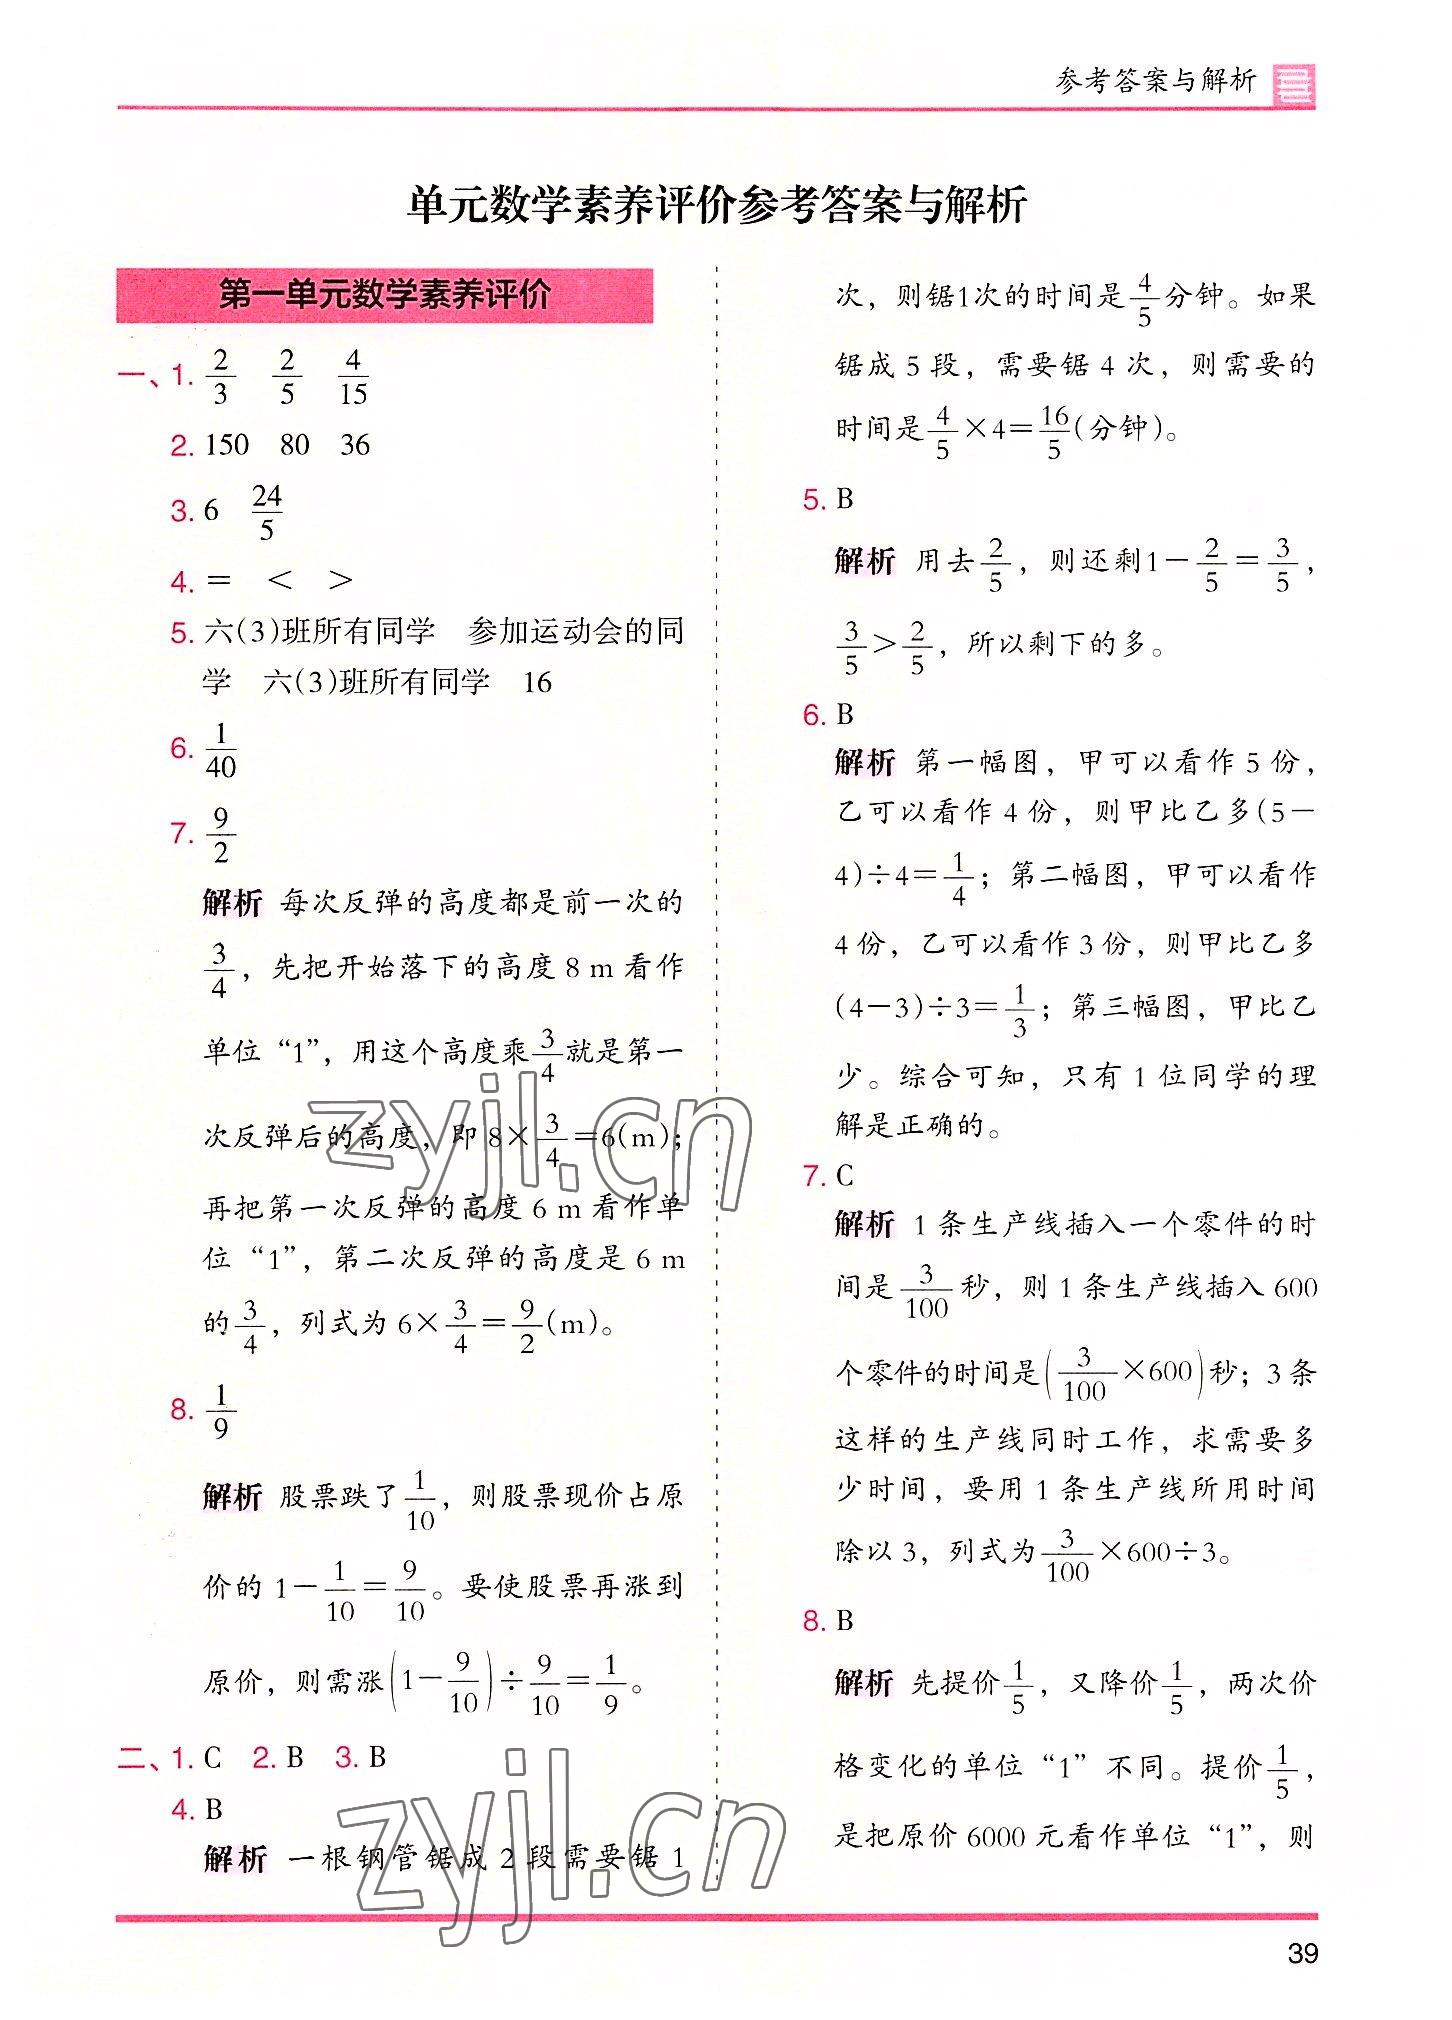 参考答案与解析
单元数学素养评价参考答案与解析
第一单元数学素养评价
一、1. 2/3 2/5 4/15
2. 150 80 36
3. 6 24/5
4. = < >
5. 六(3)班所有同学 参加运动会的同
学 六(3)班所有同学 16
6. 1/40
7. 9/2
解析 每次反弹的高度都是前一次的
3/4，先把开始落下的高度 8 m 看作
单位“1”，用这个高度乘3/4就是第一
次反弹后的高度，即 8×3/4=6(m)；
再把第一次反弹的高度 6 m 看作单
位“1”，第二次反弹的高度是 6 m
的3/4，列式为 6×3/4=9/2(m)。
8. 1/9
解析 股票跌了1/10，则股票现价占原
价的 1-1/10=9/10。要使股票再涨到
原价，则需涨(1-9/10)÷9/10=1/9。
二、1. C 2. B 3. B
4. B
解析 一根钢管锯成 2 段需要锯 1
次，则锯1次的时间是4/5分钟。如果
锯成 5 段，需要锯 4 次，则需要的
时间是4/5×4=16/5(分钟)。
5. B
解析 用去2/5，则还剩1-2/5=3/5，
3/5>2/5，所以剩下的多。
6. B
解析 第一幅图，甲可以看作 5 份，
乙可以看作 4 份，则甲比乙多(5-
4)÷4=1/4；第二幅图，甲可以看作
4 份，乙可以看作 3 份，则甲比乙多
(4-3)÷3=1/3；第三幅图，甲比乙
少。综合可知，只有 1 位同学的理
解是正确的。
7. C
解析 1 条生产线插入一个零件的时
间是3/100秒，则 1 条生产线插入 600
个零件的时间是(3/100×600)秒；3 条
这样的生产线同时工作，求需要多
少时间，要用 1 条生产线所用时间
除以 3，列式为3/100×600÷3。
8. B
解析 先提价1/5，又降价1/5，两次价
格变化的单位“1”不同。提价1/5，
是把原价 6000 元看作单位“1”，则
39
zyjl.cn
zyjl.cn